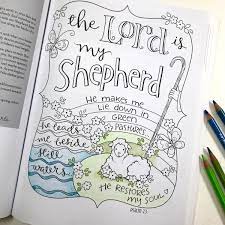 the Lord is
my
Shepherd
He makes me
lie down in
Green
Pastures
He leads
me beside
still
waters
He Restores
my soul
PSALM 23